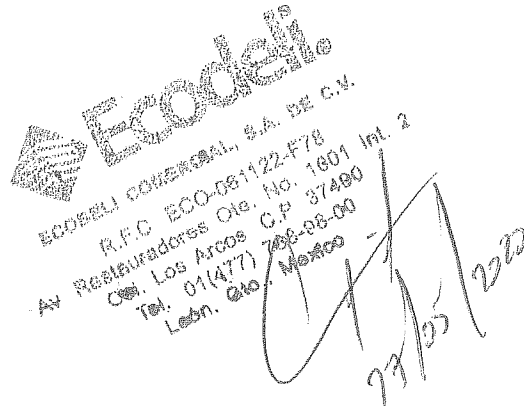 Ecodeli®
ECODELI COMERCIAL, S.A. DE C.V.
R.F.C ECO-061122-F78
Av Restauradores Ote. No. 1601 Int. 2
Col. Los Arcos C.P 37490
Tel. 01(477) 796-98-00
León, Gto. Mexico